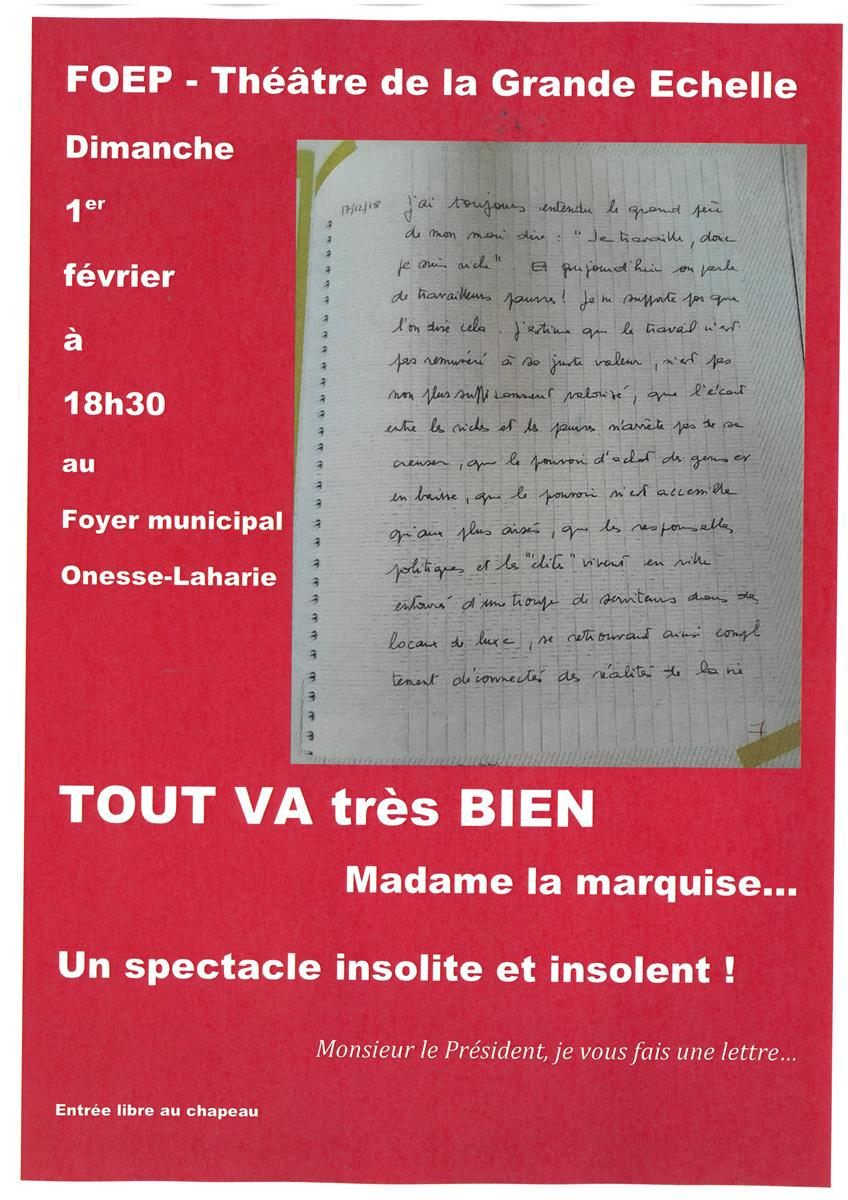 FOEP - Théâtre de la Grande Echelle
Dimanche
1er
février
à
18h30
au
Foyer municipal
Onesse-Laharie
17/12/18 j'ai toujours entendu le grand père
de mon mari dire : "Je travaille, donc
je suis riche" Et aujourd'hui on parle
de travailleurs pauvres ! Je ne supporte pas que
l'on dise cela. J'estime que le travail n'est
pas remunéré à sa juste valeur, n'est pas
non plus suffisamment valorisé, que l'écart
entre les riches et les pauvres n'arrête pas de se
creuser, que le pouvoir d'achat des gens est
en baisse, que le pouvoir n'est accessible
qu'aux plus aisés, que les responsables
politiques et les "élites" vivent en ville
entourés d'une troupe de serviteurs dans des
locaux de luxe, se retrouvant ainsi compl
tement déconnectés des réalités de la vie
7
TOUT VA très BIEN
Madame la marquise...
Un spectacle insolite et insolent !
Monsieur le Président, je vous fais une lettre...
Entrée libre au chapeau